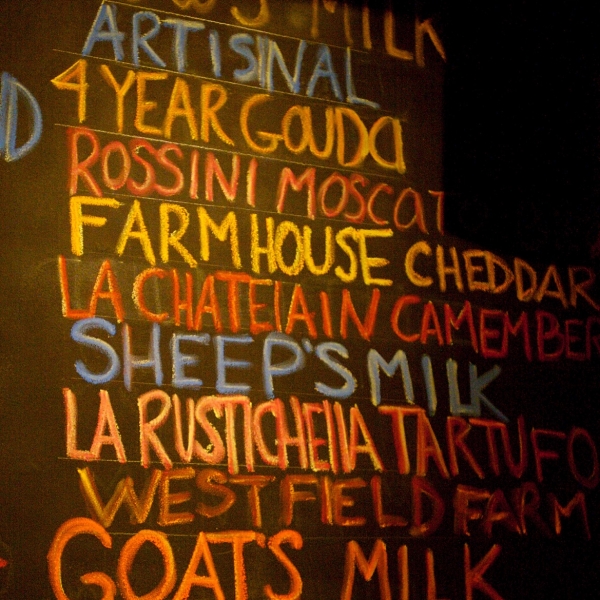 MILK
ARTISINAL
4 YEAR GOUDA
ROSSINI MOSCAT
FARMHOUSE CHEDDAR
LA CHATELAIN CAMEMBER
SHEEP'S MILK
LA RUSTICHELLA TARTUFO
WESTFIELD FARM
GOAT'S MILK